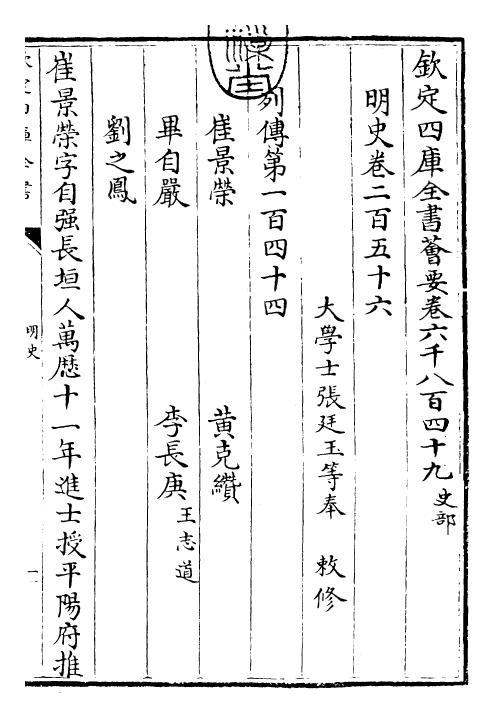 欽定四庫全書薈要卷六千八百四十九史部
明史卷二百五十六
大學士張廷玉等奉 敕修
列傳第一百四十四
崔景榮 黃克纘
畢自嚴 李長庚王志道
劉之鳳
崔景榮字自强長垣人萬歷十一年進士授平陽府推
明史
一